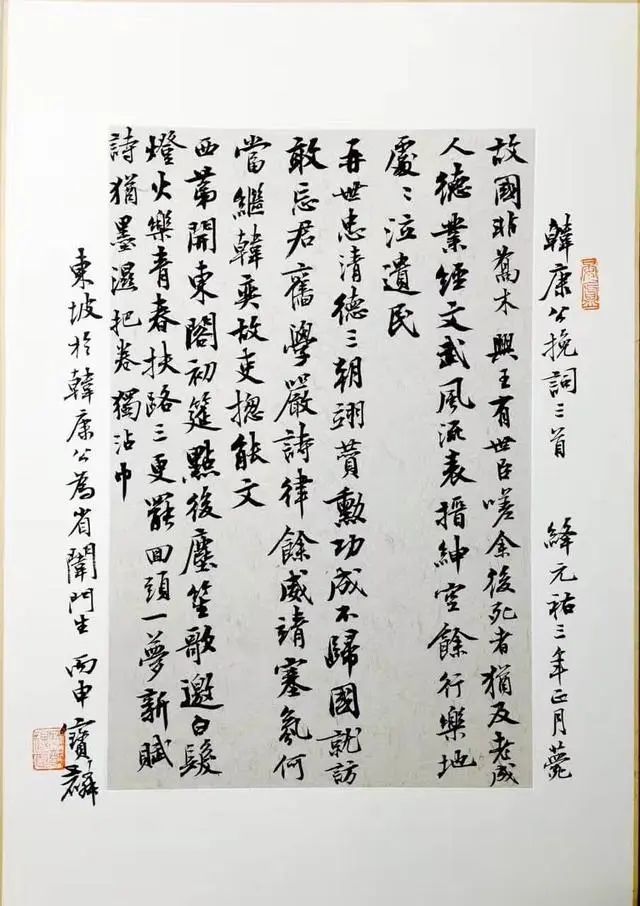 韓康公挽詞三首　絳元祐三年正月薨
故國非喬木興王有世臣嗟余後死者猶及老成
人德業經文武風流表搢紳空餘行樂地
處〻泣遺民
再世忠清德三朝翊贊勳功成不歸國就訪
敢忘君舊學嚴詩律餘威靖塞氛何
當繼韓奕故吏揔能文
西第開東閣初筵點後塵笙歌邀白髮
燈火樂青春扶路三更罷回頭一夢新賦
詩猶墨濕把卷獨沾巾
東坡於韓康公為省闈門生　丙申寶麟